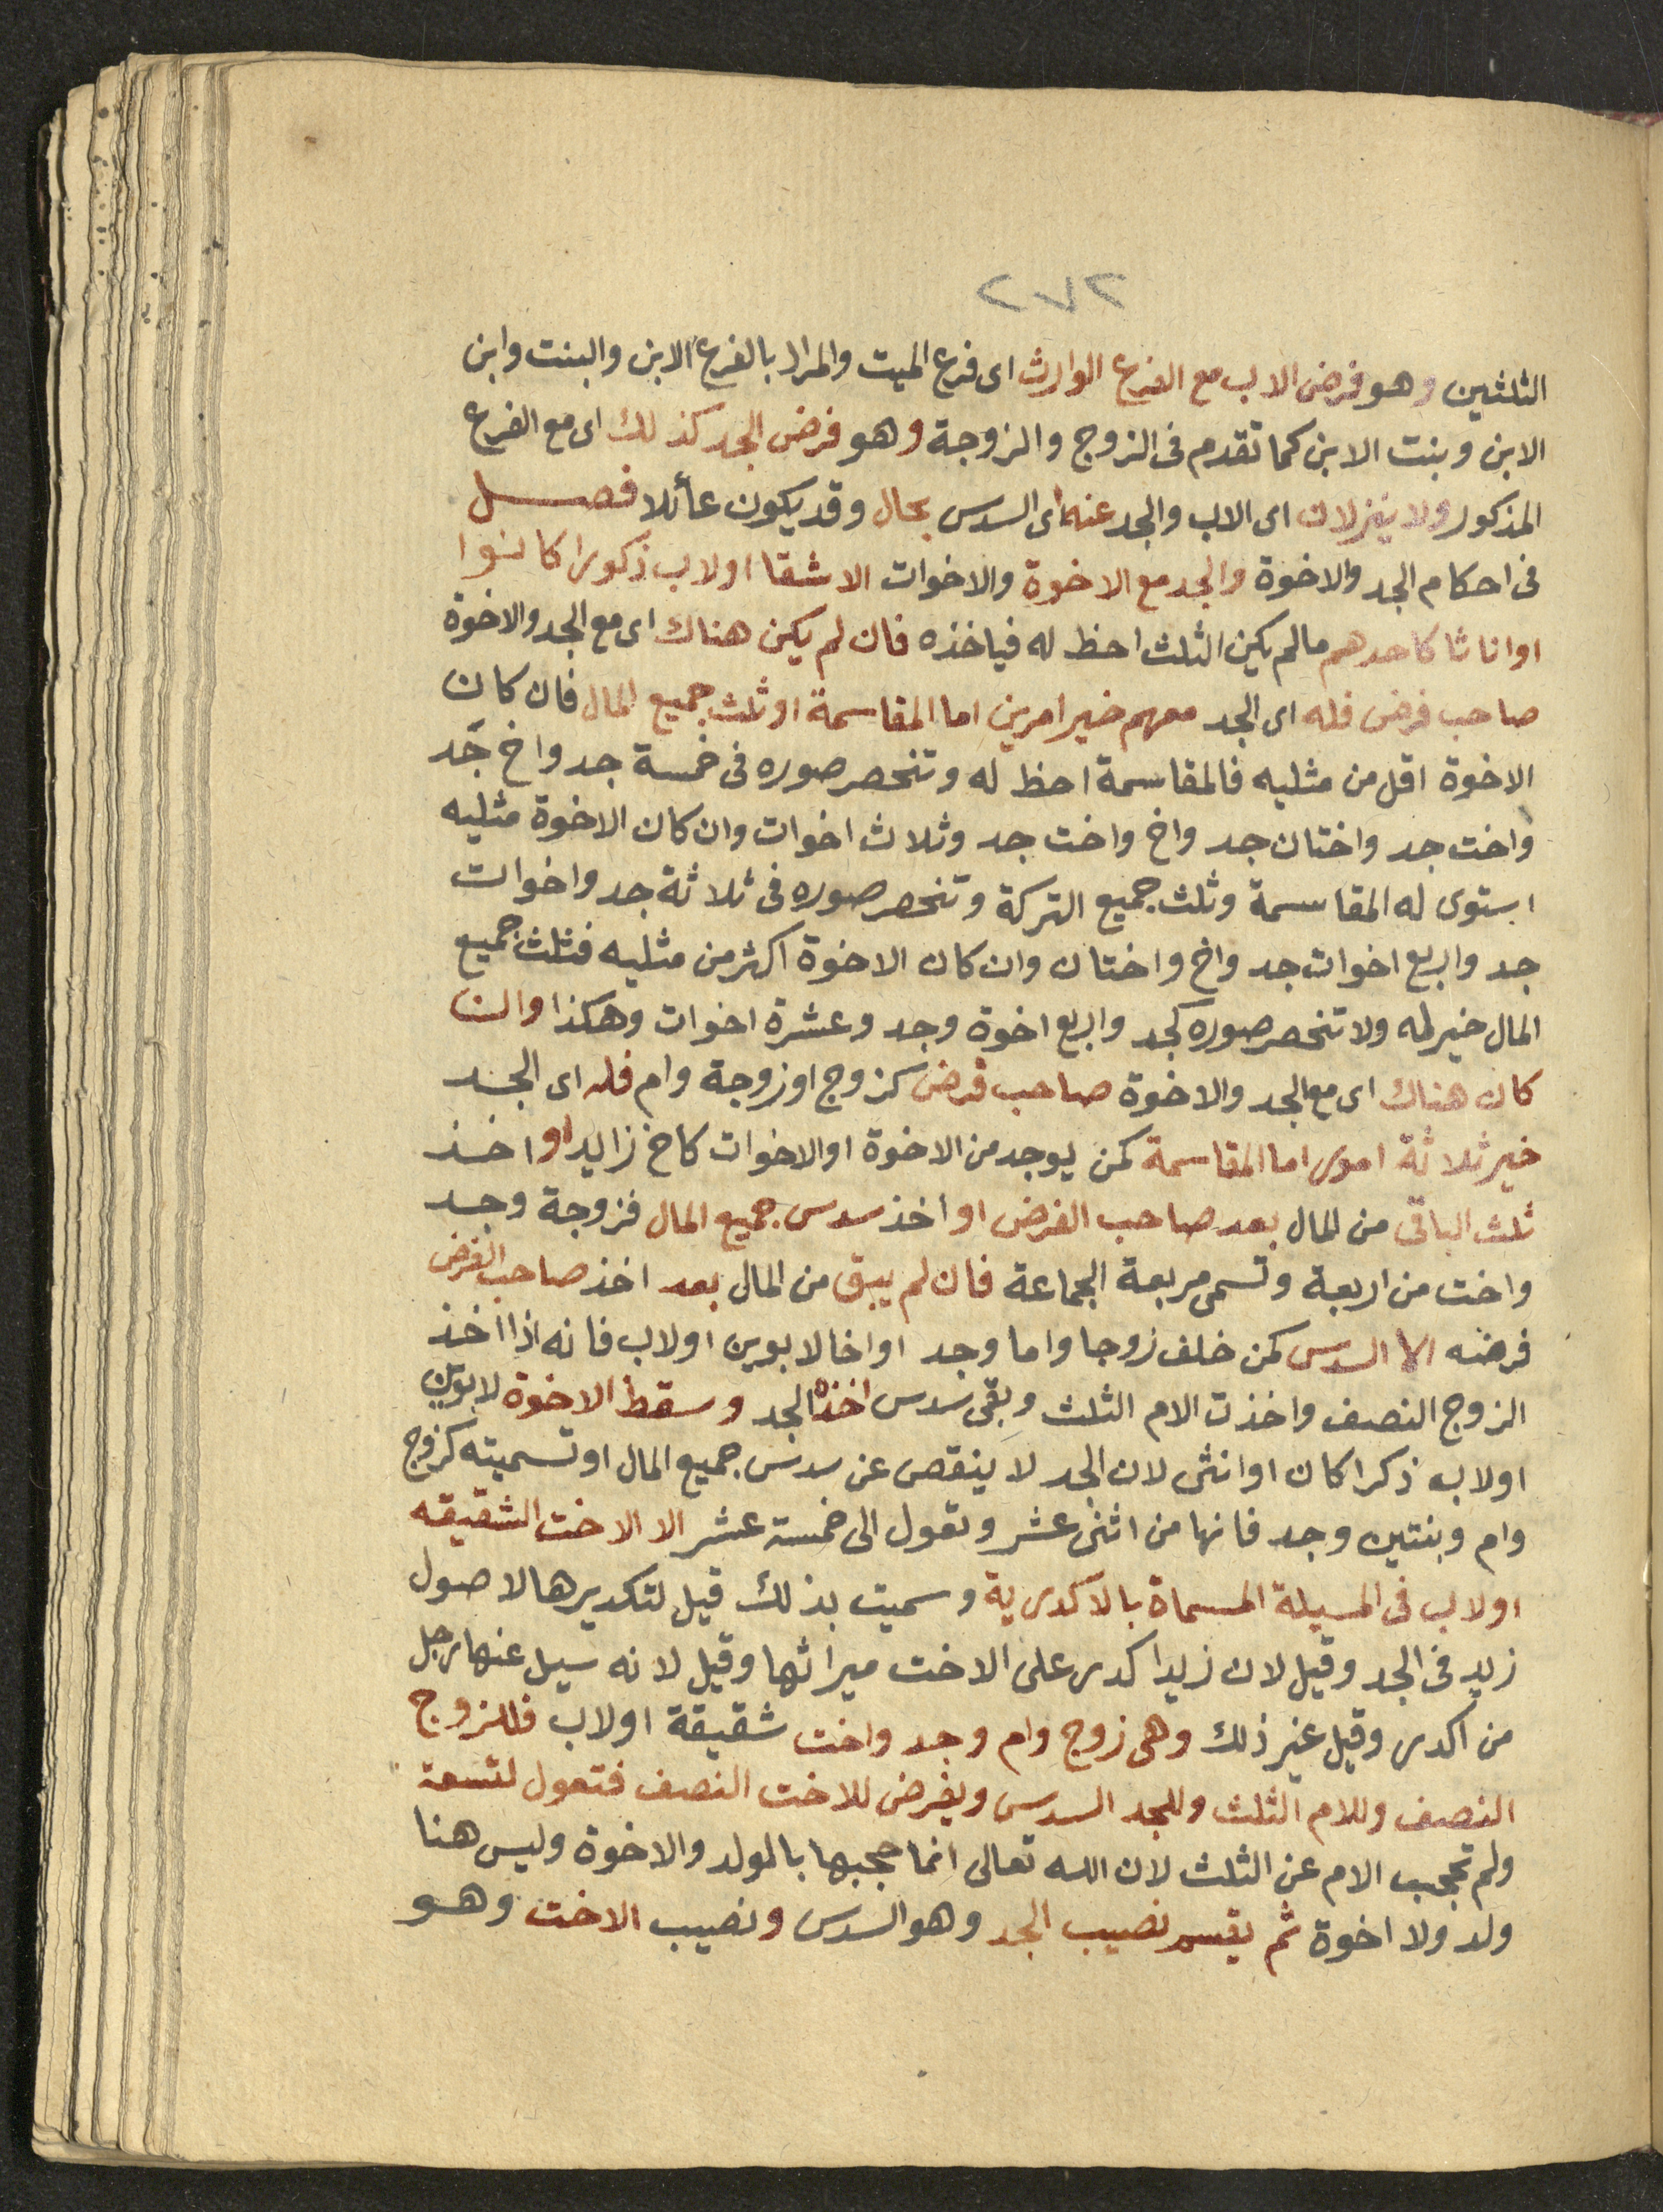 ٢٧٢
الثلثين وهو فرض الاب مع الفرع الوارث اى فرع الميت والمراد بالفرع الابن والبنت وابن
الابن وبنت الابن كما تقدم فى الزوج والزوجة وهو فرض الجد كذلك اى مع الفرع
المذكور ولا ينزلان اى الاب والجد عنه اى السدس بحال وقد يكون عائلا فصل
فى احكام الجد والاخوة والجد مع الاخوة والاخوات الاشقا اولاب ذكورا كانوا
اواناثا كاحدهم مالم يكن الثلث احظ له فياخذه فان لم يكن هناك اى مع الجد والاخوة
صاحب فرض فله اى الجد معهم خير امرين اما المقاسمة او ثلث جميع المال فان كان
الاخوة اقل من مثليه فالمقاسمة احظ له وتنحصر صوره فى خمسة جد واخ جد
واخت جد واختان جد واخ واخت جد وثلاث اخوات وان كان الاخوة مثليه
استوى له المقاسمة وثلث جميع التركة وتنحصر صوره فى ثلاثة جد واخوات
جد واربع اخوات جد واخ واختان وان كان الاخوة اكثر من مثليه فثلث جميع
المال خير له ولا تنحصر صوره كجد واربع اخوة وجد وعشرة اخوات وهكذا وان
كان هناك اى مع الجد والاخوة صاحب فرض كزوج او زوجة وام فله اى الجد
خير ثلاثة امور اما المقاسمة كمن يوجد من الاخوة او الاخوات كاخ زايد او اخذ
ثلث الباقى من المال بعد صاحب الفرض او اخذ سدس جميع المال فزوجة وجد
واخت من اربعة وتسمى مربعة الجماعة فان لم يبق من المال بعد اخذ صاحب الفرض
فرضه الا السدس كمن خلف زوجا واما وجد او اخا لابوين اولاب فانه اذا اخذ
الزوج النصف واخذت الام الثلث وبقى سدس اخذه الجد وسقط الاخوة لابوين
اولاب ذكرا كان او انثى لان الجد لا ينقص عن سدس جميع المال او تسميته كزوج
وام وبنتين وجد فانها من اثنى عشر وتعول الى خمسة عشر الا الاخت الشقيقه
اولاب فى المسيلة المسماة بالاكدرية وسميت بذلك قيل لتكديرها لاصول
زيد فى الجد وقيل لان زيدا كدر على الاخت ميراثها وقيل لانه سيل عنها رجل
من اكدر وقيل غير ذلك وهى زوج وام وجد واخت شقيقة اولاب فللزوج
النصف وللام الثلث وللجد السدس ويفرض للاخت النصف فتعول لتسعة
ولم تحجب الام عن الثلث لان الله تعالى انما حجبها بالولد والاخوة وليس هنا
ولد ولا اخوة ثم يقسم نصيب الجد وهو السدس ونصيب الاخت وهو